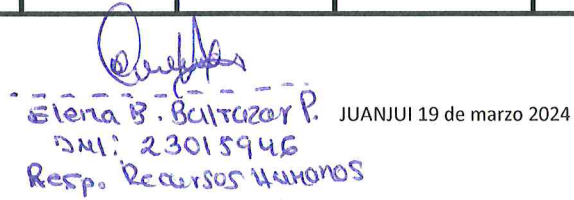 Elena B. Baltazar P. JUANJUI 19 de marzo 2024
DNI: 23015946
Resp. Recursos Humanos